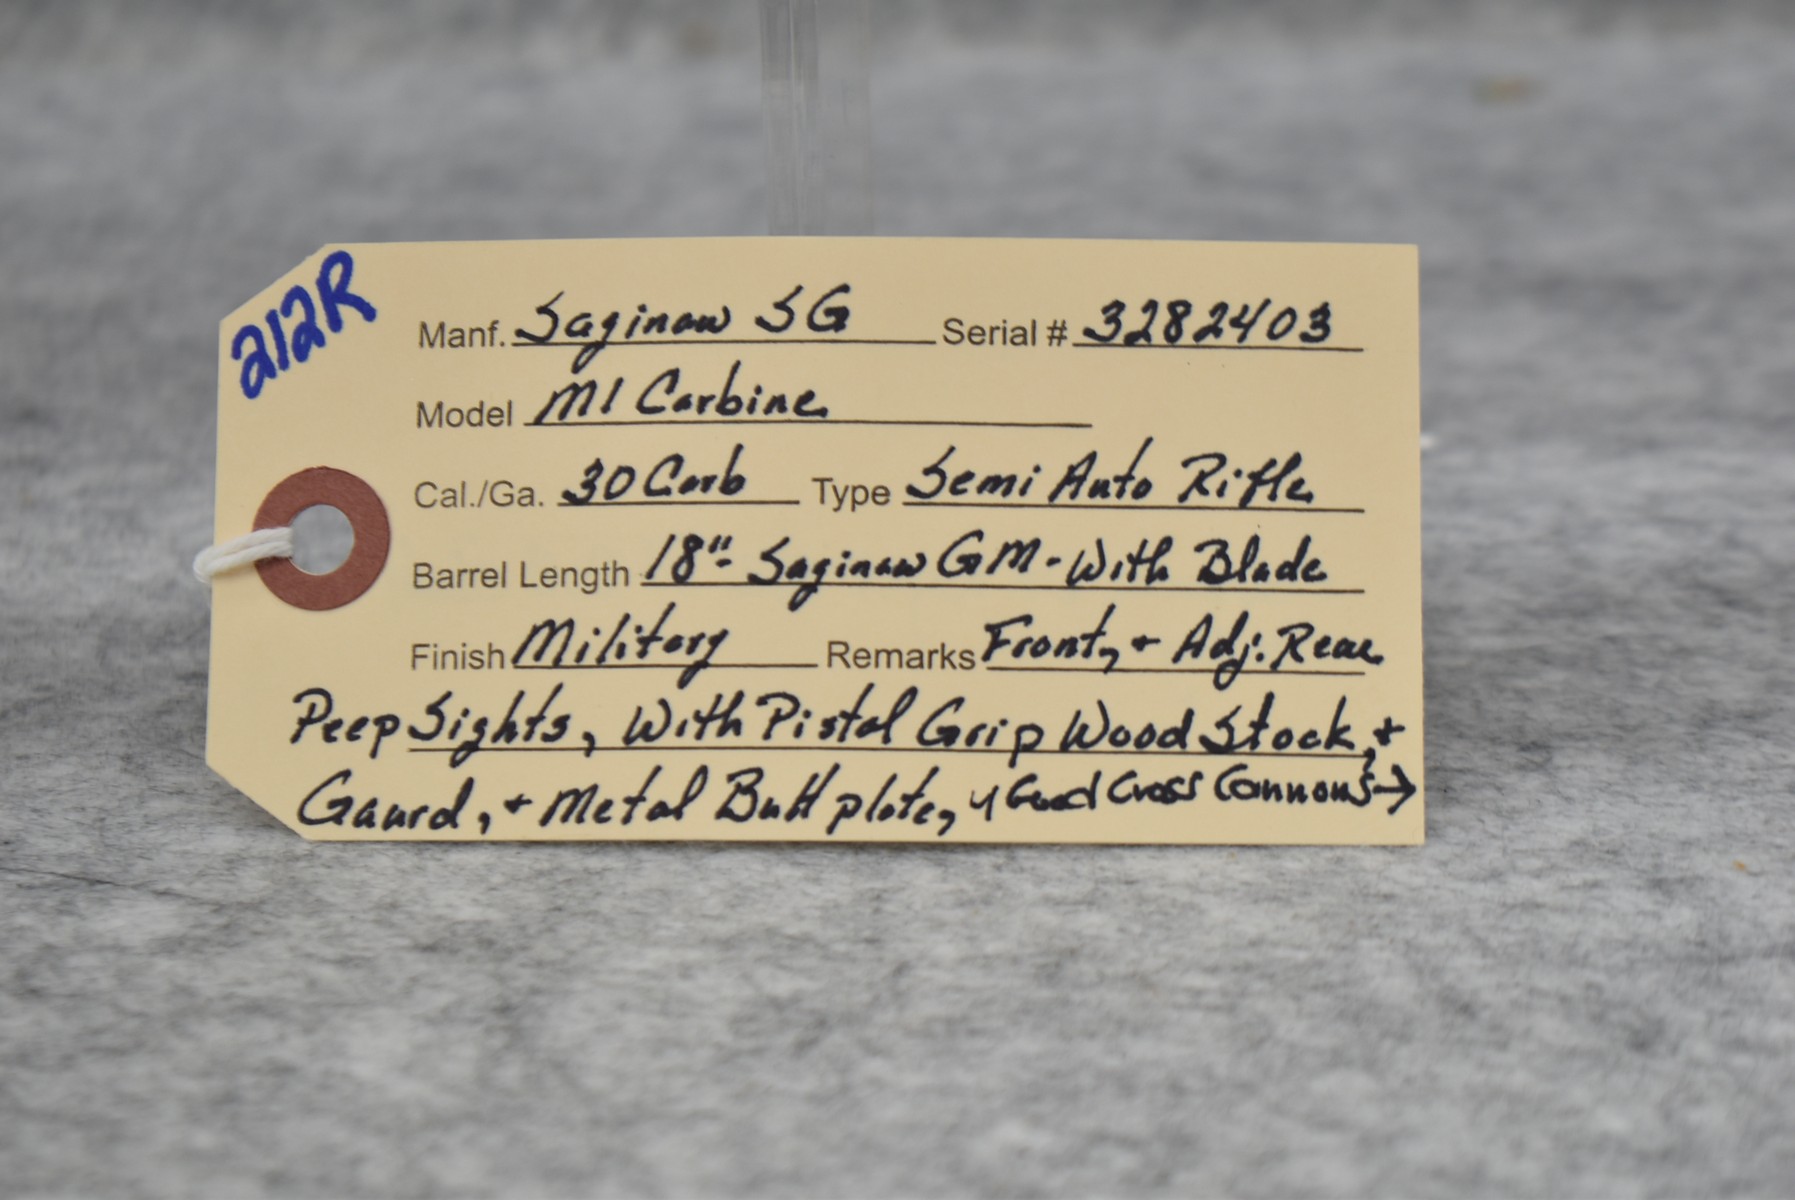 212R
Manf. Saginaw SG Serial # 3282403
Model M1 Carbine
Cal./Ga. 30 Carb Type Semi Auto Rifle
Barrel Length 18"- Saginaw GM - With Blade
Finish Military Remarks Front, + Adj. Rear
Peep Sights, With Pistol Grip Wood Stock, +
Gaurd, + Metal Butt plate, + Good Cross Cannons →